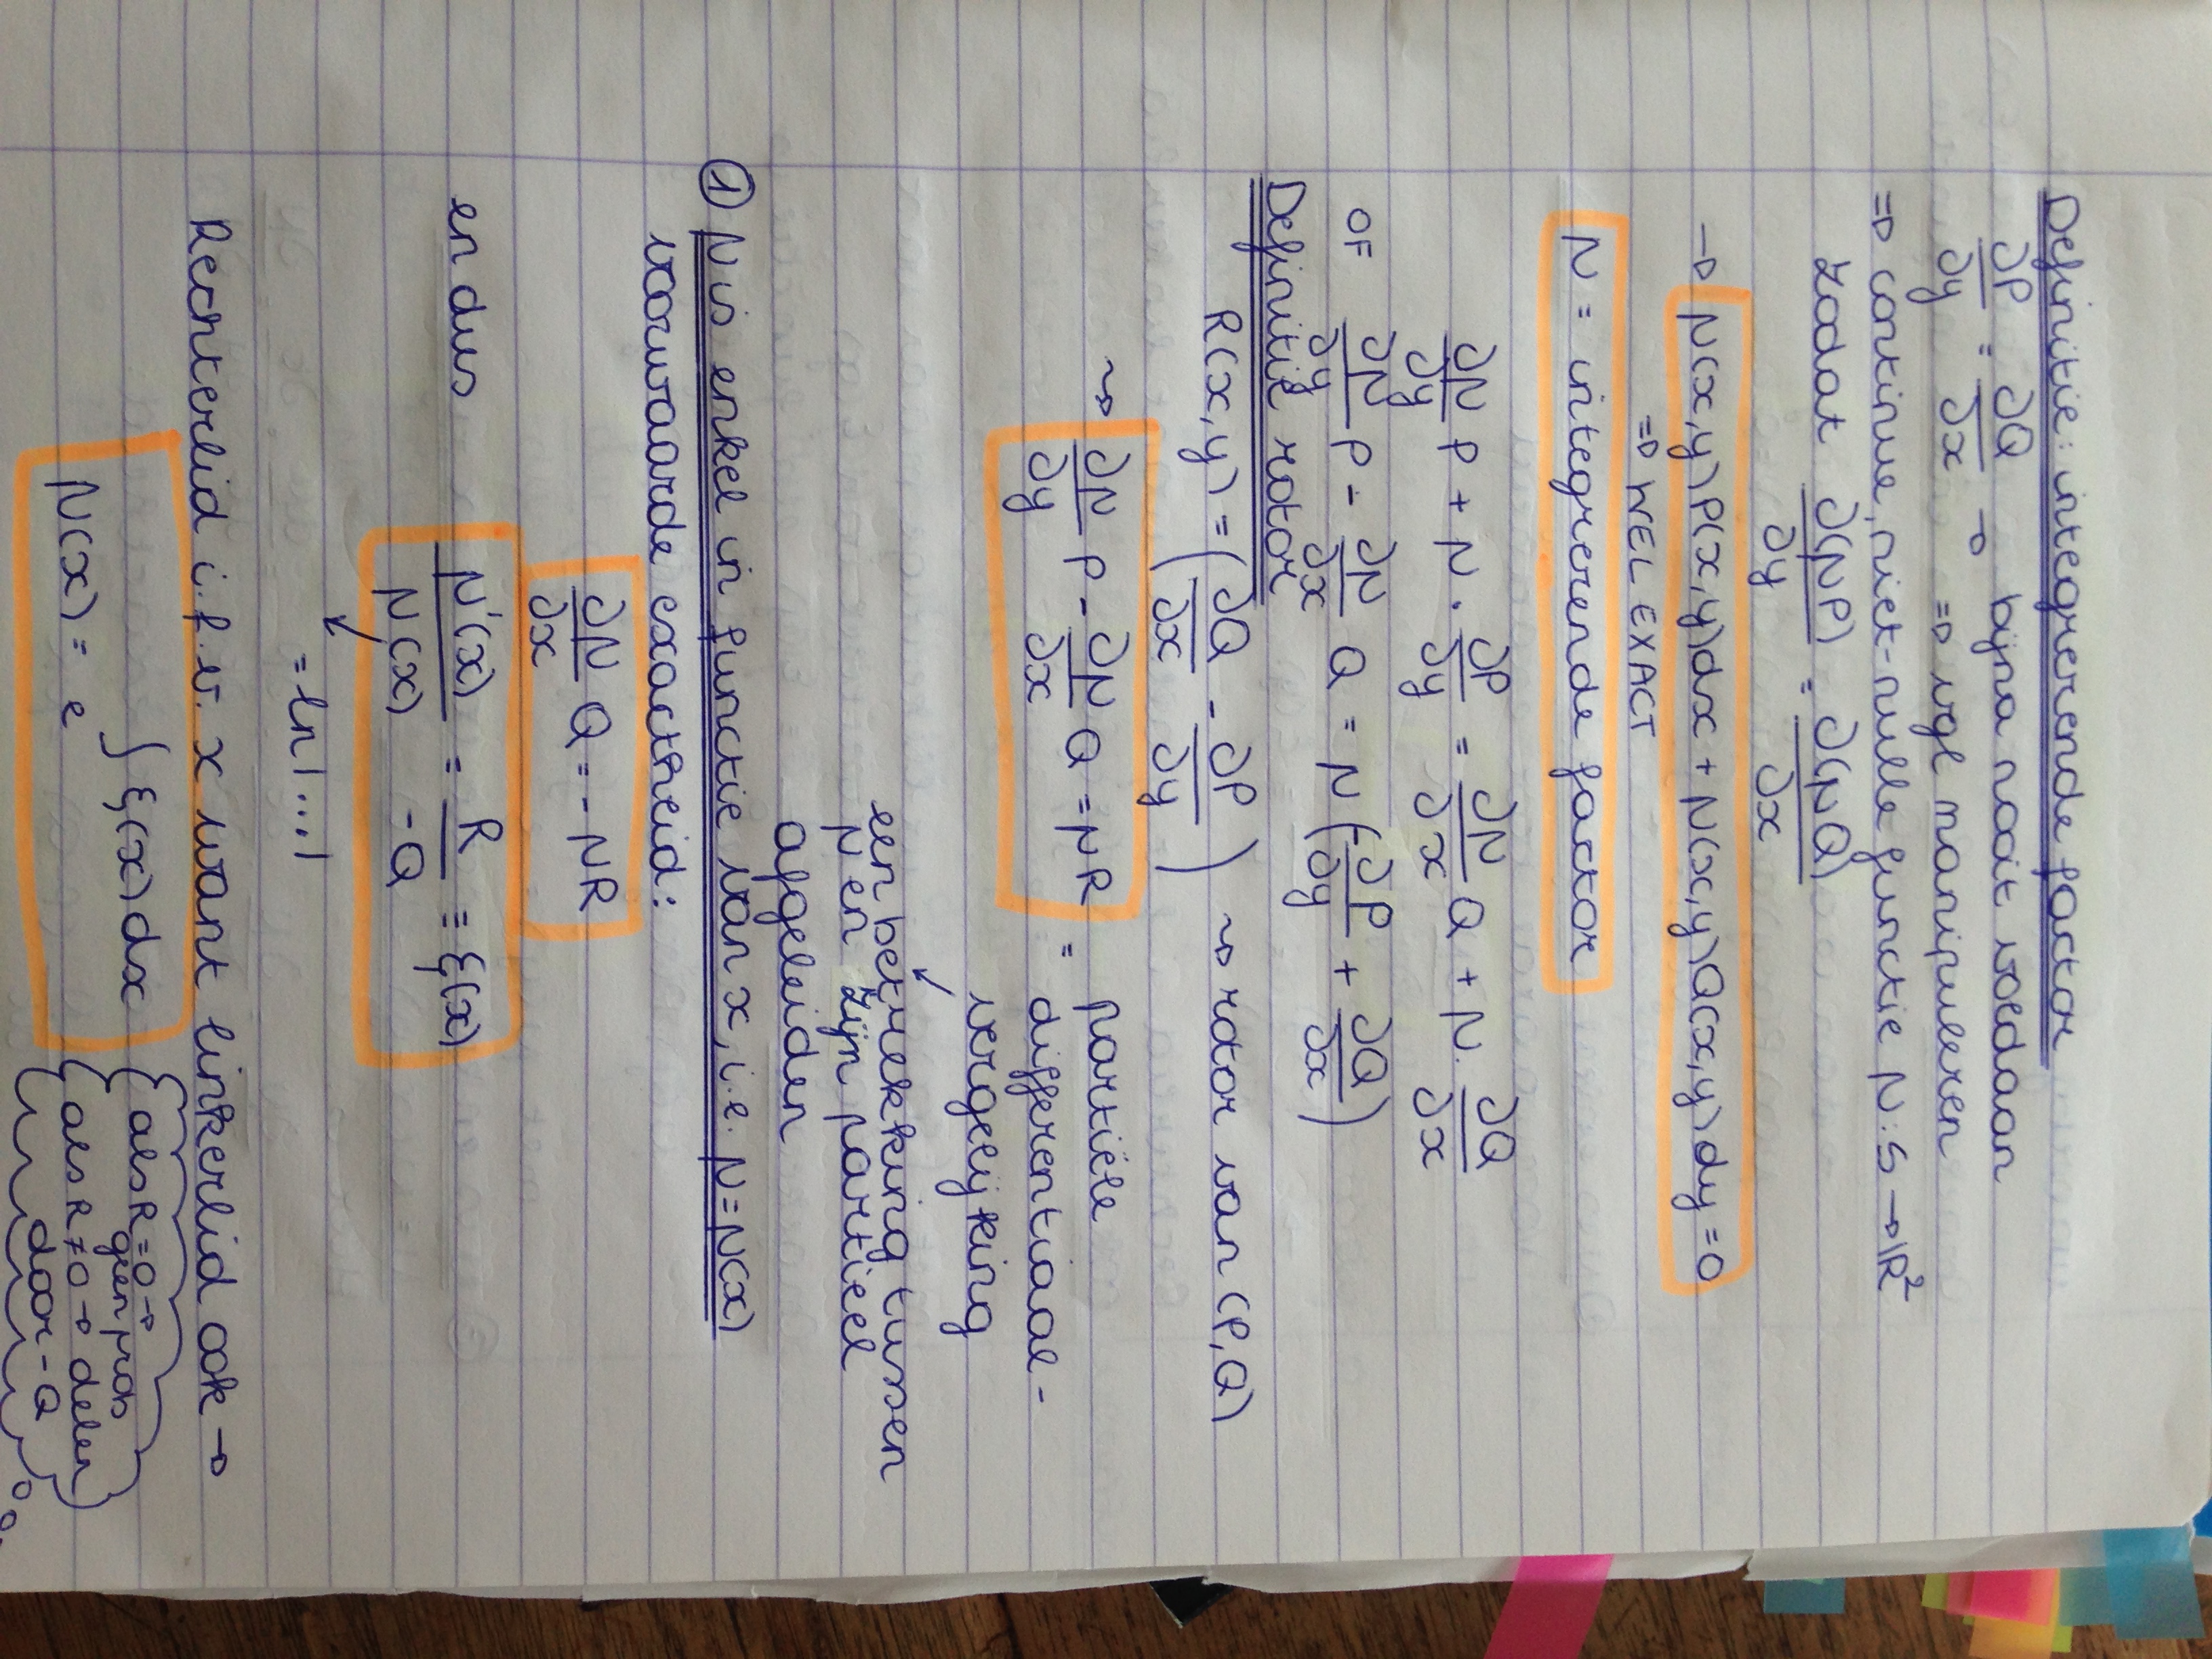 Definitie: integrerende factor
∂P/∂y = ∂Q/∂x → bijna nooit voldaan
⇒ vgl manipuleren
⇒ continue, niet-nulle functie μ: S → ℝ²
zodat ∂(μP)/∂y = ∂(μQ)/∂x
→ μ(x,y)P(x,y)dx + μ(x,y)Q(x,y)dy = 0
⇒ WEL EXACT
μ = integrerende factor
∂μ/∂y P + μ · ∂P/∂y = ∂μ/∂x Q + μ · ∂Q/∂x
OF ∂μ/∂y P - ∂μ/∂x Q = μ(-∂P/∂y + ∂Q/∂x)
Definitie rotor
R(x,y) = (∂Q/∂x - ∂P/∂y) ⇝ rotor van (P,Q)
⇝ ∂μ/∂y P - ∂μ/∂x Q = μR = partiële
differentiaal-
vergelijking
een betrekking tussen
μ en zijn partieel
afgeleiden
① μ is enkel in functie van x, i.e. μ = μ(x)
voorwaarde exactheid:
∂μ/∂x Q = - μR
en dus μ'(x)/μ(x) = R/-Q ≡ ξ(x)
= ln|...|
Rechterlid i.f.v. x want linkerlid ook →
μ(x) = e^∫ξ(x)dx
als R=0 →
geen prob
als R≠0 → delen
door -Q